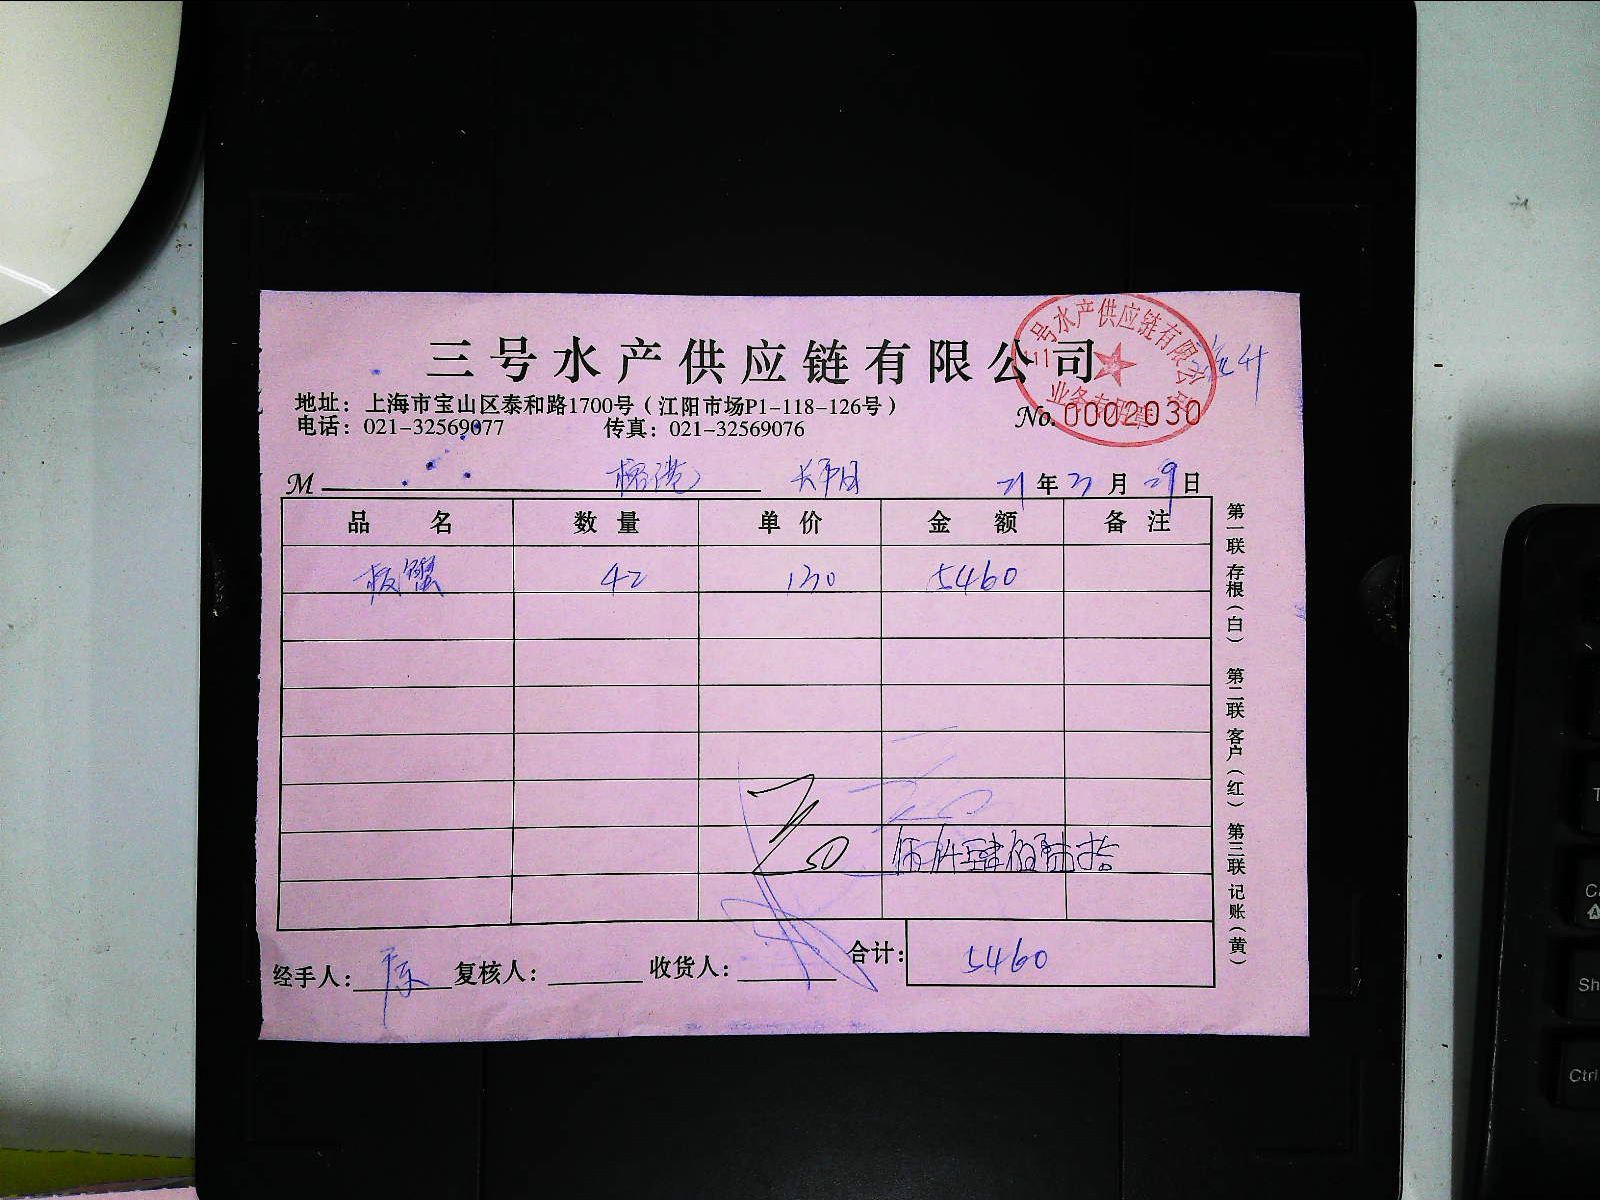 三号水产供应链有限公司
地址：上海市宝山区泰和路1700号（江阳市场P1-118-126号）
电话：021-32569077 传真：021-32569076
No. 0002030
三号水产供应链有限公司
业务专用章
M 榕港 21年 月29日
品名 数量 单价 金额 备注
板蟹 42 130 5460
伍仟肆佰陆拾
经手人： 复核人： 收货人： 合计：5460
第一联 存根（白） 第二联 客户（红） 第三联 记账（黄）
Sh
Ctrl